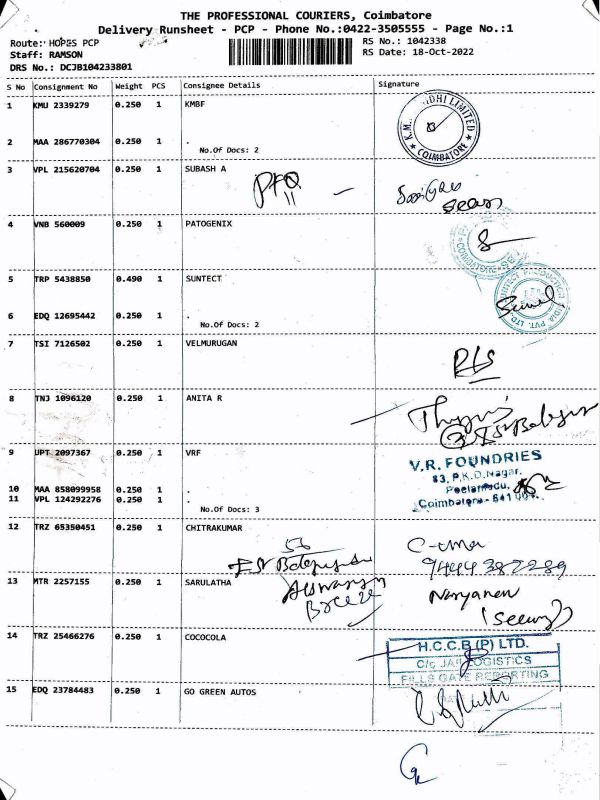 THE PROFESSIONAL COURIERS, Coimbatore
Delivery Runsheet - PCP - Phone No.:0422-3505555 - Page No.:1
Route: HOPES PCP
RS No.: 1042338
Staff: RAMSON
RS Date: 18-Oct-2022
DRS No.: DCJB104233801
S No Consignment No Weight PCS Consignee Details Signature
1 KMU 2339279 0.250 1 KMBF
LIMITED
COIMBATORE
2 MAA 286770304 0.250 1 .
No.Of Docs: 2
3 VPL 215620704 0.250 1 SUBASH A
4 VNB 560009 0.250 1 PATOGENIX
5 TRP 5438850 0.490 1 SUNTECT
6 EDQ 12695442 0.250 1 .
No.Of Docs: 2
7 TSI 7126502 0.250 1 VELMURUGAN
8 TNJ 1096120 0.250 1 ANITA R
9 UPT 2097367 0.250 1 VRF
V.R. FOUNDRIES
83, P.K.D.Nagar,
Peelamedu,
Coimbatore - 641 004.
10 MAA 858099958 0.250 1 .
11 VPL 124292276 0.250 1 .
No.Of Docs: 3
12 TRZ 65350451 0.250 1 CHITRAKUMAR
9444387289
13 MTR 2257155 0.250 1 SARULATHA
Breeze
14 TRZ 25466276 0.250 1 COCOCOLA
H.C.C.B (P) LTD.
C/o JAI LOGISTICS
FILLS GATE REPORTING
15 EDQ 23784483 0.250 1 GO GREEN AUTOS